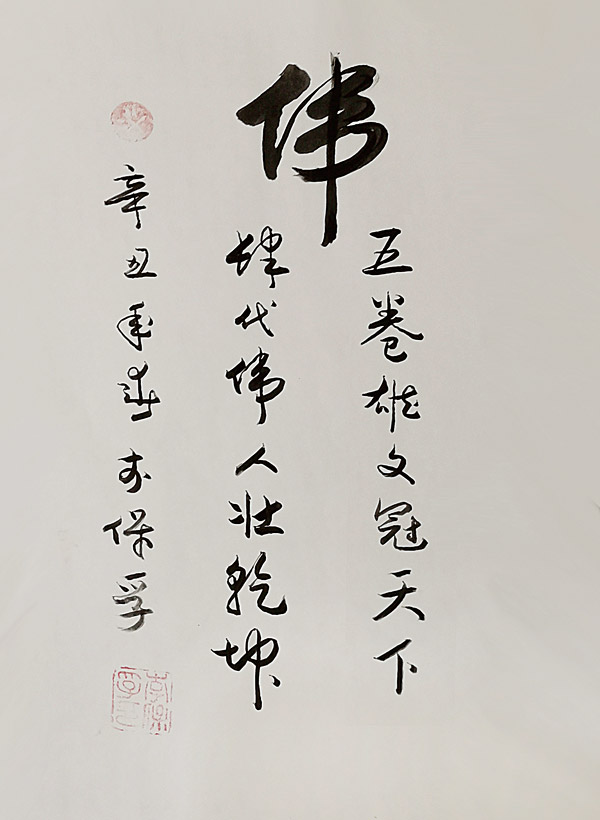 伟
五卷雄文冠天下
肆代伟人壮乾坤
辛丑年 李保孚